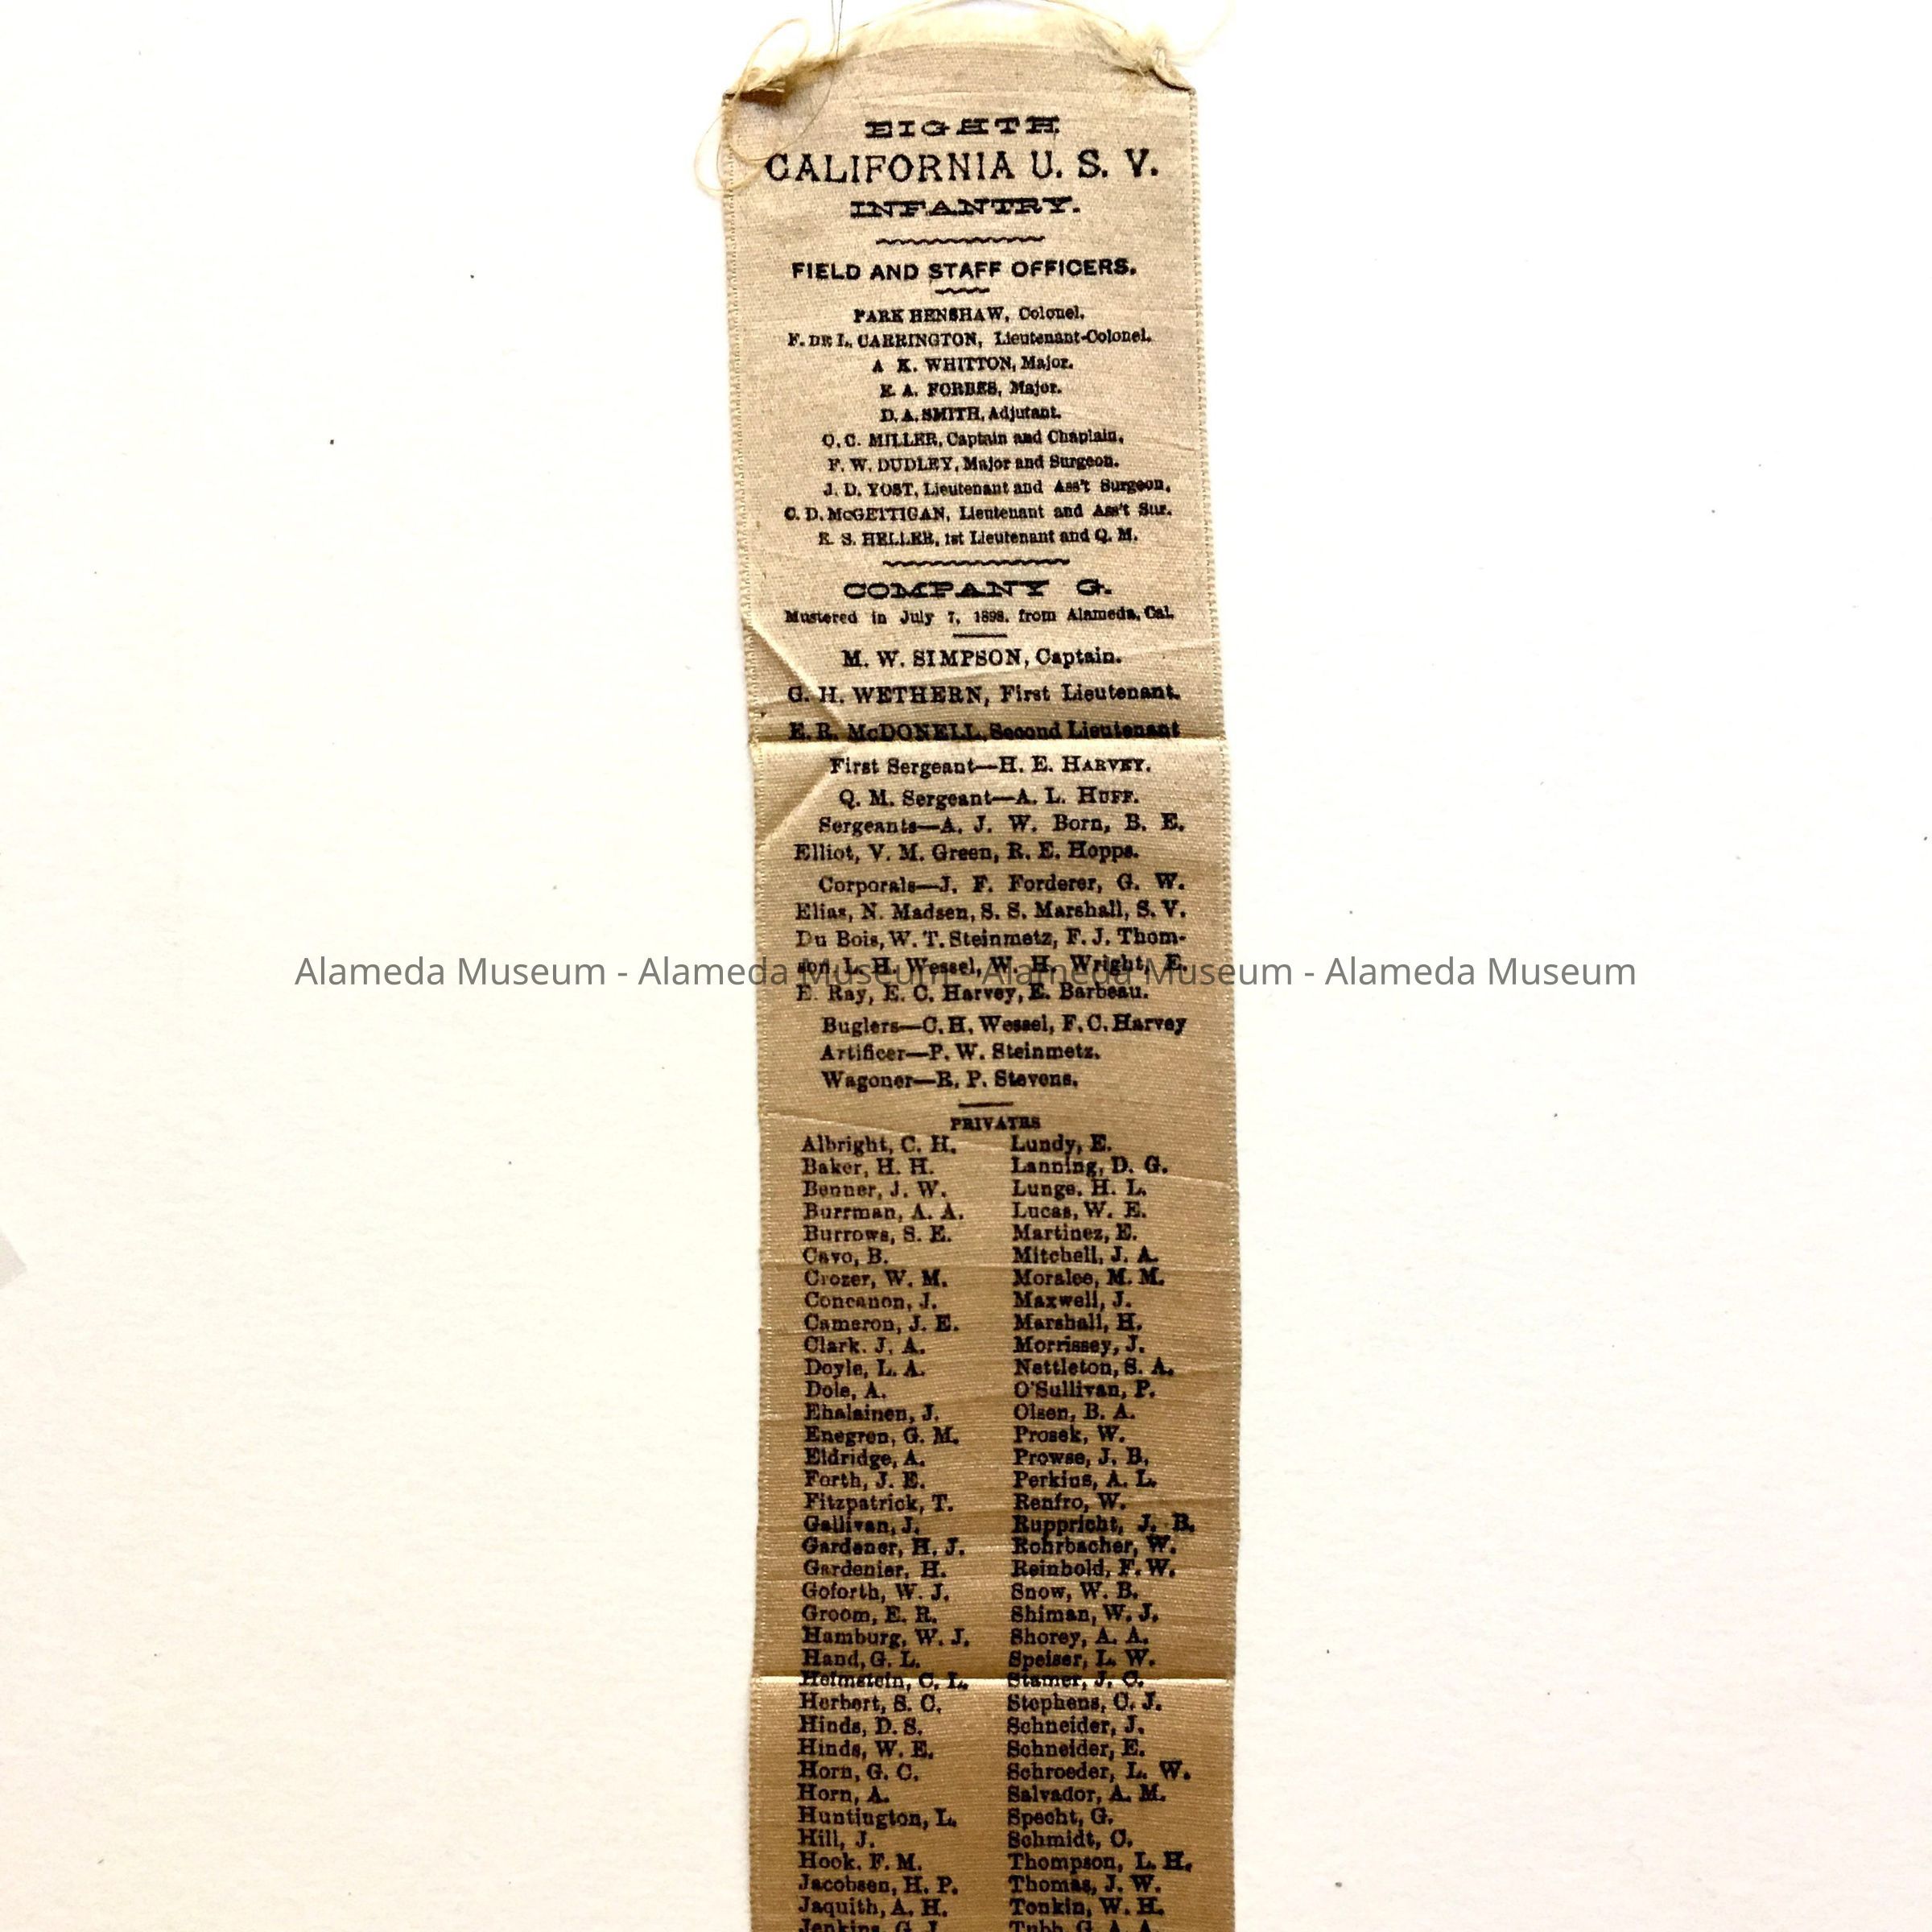 EIGHTH
CALIFORNIA U. S. V.
INFANTRY.
FIELD AND STAFF OFFICERS.
PARK HENSHAW, Colonel.
F. DE L. CARRINGTON, Lieutenant-Colonel.
A K. WHITTON, Major.
E. A. FORBES, Major.
D. A. SMITH, Adjutant.
O. C. MILLER, Captain and Chaplain.
F. W. DUDLEY, Major and Surgeon.
J. D. YOST, Lieutenant and Ass't Surgeon.
C. D. McGETTIGAN, Lieutenant and Ass't Sur.
E. S. HELLER, 1st Lieutenant and Q. M.
COMPANY G.
Mustered in July 7, 1898, from Alameda, Cal.
M. W. SIMPSON, Captain.
G. H. WETHERN, First Lieutenant.
E. R. McDONELL, Second Lieutenant
First Sergeant—H. E. HARVEY.
Q. M. Sergeant—A. L. HUFF.
Sergeants—A. J. W. Born, B. E.
Elliot, V. M. Green, R. E. Hopps.
Corporals—J. F. Forderer, G. W.
Elias, N. Madsen, S. S. Marshall, S. V.
Du Bois, W. T. Steinmetz, F. J. Thom-
son L. H. Wessel, W. H. Wright, E.
E. Ray, E. C. Harvey, E. Barbeau.
Alameda Museum - Alameda Museum - Alameda Museum - Alameda Museum
Buglers—C. H. Wessel, F. C. Harvey
Artificer—P. W. Steinmetz.
Wagoner—R. P. Stevens.
PRIVATES
Albright, C. H.
Baker, H. H.
Benner, J. W.
Burrman, A. A.
Burrows, S. E.
Cavo, B.
Crozer, W. M.
Concanon, J.
Cameron, J. E.
Clark. J. A.
Doyle, L. A.
Dole, A.
Ehalainen, J.
Enegren, G. M.
Eldridge, A.
Forth, J. E.
Fitzpatrick, T.
Gallivan, J.
Gardener, H. J.
Gardenier, H.
Goforth, W. J.
Groom, E. R.
Hamburg, W. J.
Hand, G. L.
Helmstein, C. L.
Herbert, S. C.
Hinds, D. S.
Hinds, W. E.
Horn, G. C.
Horn, A.
Huntington, L.
Hill, J.
Hook. F. M.
Jacobsen, H. P.
Jaquith, A. H.
Jenkins, G. J.
Lundy, E.
Lanning, D. G.
Lunge. H. L.
Lucas, W. E.
Martinez, E.
Mitchell, J. A.
Moralee, M. M.
Maxwell, J.
Marshall, H.
Morrissey, J.
Nettleton, S. A.
O'Sullivan, P.
Olsen, B. A.
Prosek, W.
Prowse, J. B.
Perkins, A. L.
Renfro, W.
Ruppricht, J. B.
Rohrbacher, W.
Reinbold, F. W.
Snow, W. B.
Shiman, W. J.
Shorey, A. A.
Speiser, L. W.
Stamer, J. C.
Stephens, C. J.
Schneider, J.
Schneider, E.
Schroeder, L. W.
Salvador, A. M.
Specht, G.
Schmidt, C.
Thompson, L. H.
Thomas, J. W.
Tonkin, W. H.
Tubb, G. A. A.